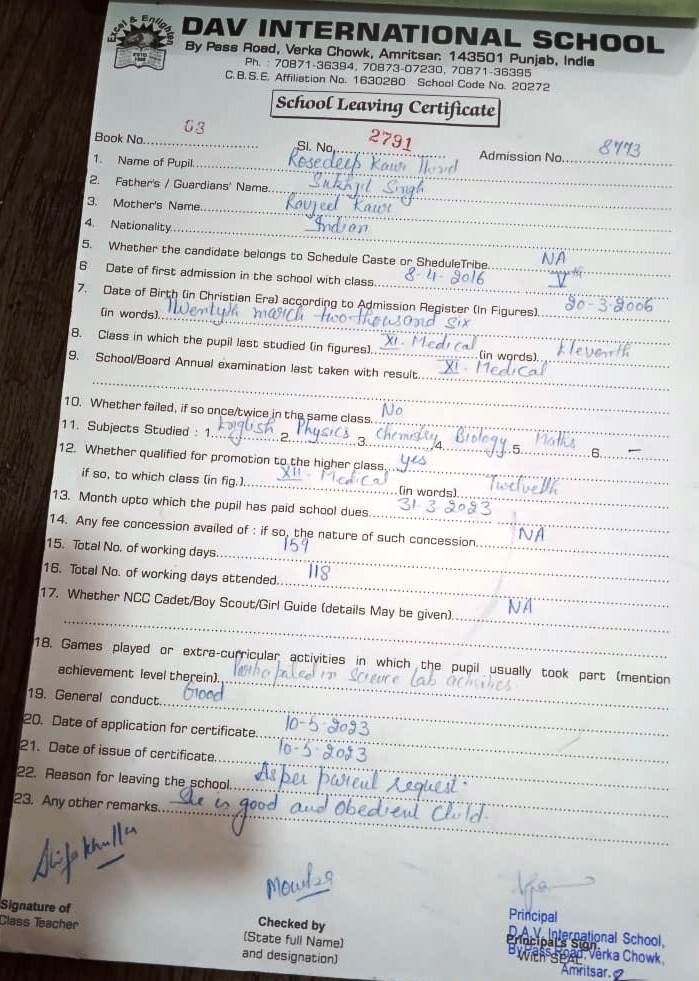 Excel & Enlighten
DAV INTERNATIONAL SCHOOL
By Pass Road, Verka Chowk, Amritsar. 143501 Punjab, India
Ph. : 70871-36394, 70873-07230, 70871-36395
C.B.S.E. Affiliation No. 1630280 School Code No. 20272
School Leaving Certificate
Book No. 63 Sl. No. 2791 Admission No. 8443
1. Name of Pupil Rosedeep Kaur
2. Father's / Guardians' Name Sukhjit Singh
3. Mother's Name Ravjeet Kaur
4. Nationality Indian
5. Whether the candidate belongs to Schedule Caste or SheduleTribe NA
6 Date of first admission in the school with class 8-4-2016 Vth
7. Date of Birth (in Christian Era) according to Admission Register (In Figures) 20-3-2006
(in words) Twentyth march two thousand six
8. Class in which the pupil last studied (in figures) XI-Medical (in words) Eleventh
9. School/Board Annual examination last taken with result XI-Medical
10. Whether failed, if so once/twice in the same class No
11. Subjects Studied : 1. English 2. Physics 3. Chemistry 4. Biology 5. Maths 6. -
12. Whether qualified for promotion to the higher class yes
if so, to which class (in fig.) XII-Medical (in words) Twelveth
13. Month upto which the pupil has paid school dues 31-3-2023
14. Any fee concession availed of : if so, the nature of such concession NA
15. Total No. of working days 159
16. Total No. of working days attended 118
17. Whether NCC Cadet/Boy Scout/Girl Guide (details May be given) NA
18. Games played or extra-curricular activities in which the pupil usually took part (mention
achievement level therein) Participated in Science Lab activities
19. General conduct Good
20. Date of application for certificate 10-5-2023
21. Date of issue of certificate 10-5-2023
22. Reason for leaving the school As per parent request.
23. Any other remarks She is good and obedient child.
Signature of
Class Teacher
Checked by
(State full Name)
and designation)
Principal
D.A.V. International School,
Principal's Sign.
By Pass Road, Verka Chowk,
With SEAL
Amritsar.